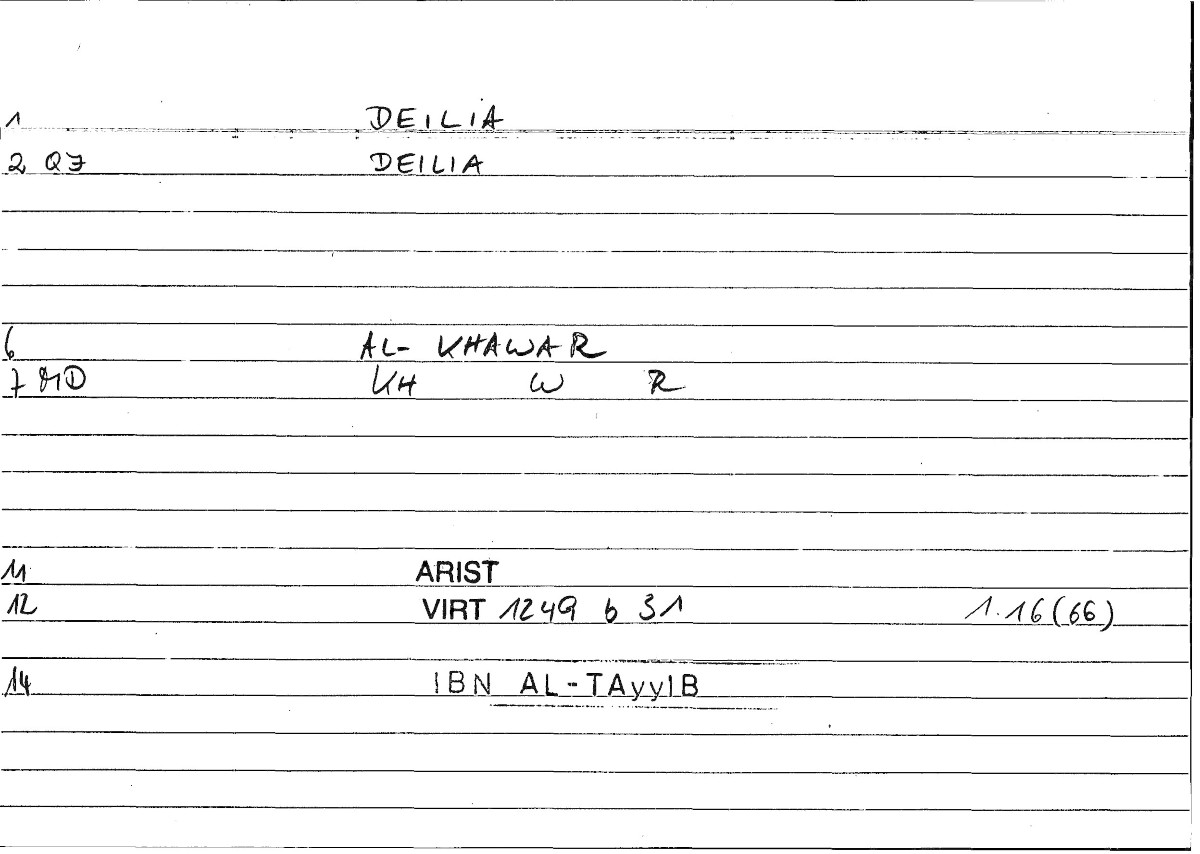 1 DEILIA
2 QJ DEILIA
6 AL- KHAWAR
7 MD KH W R
11 ARIST
12 VIRT 1249 b 31 1.16(66)
14 IBN AL-TAyyIB